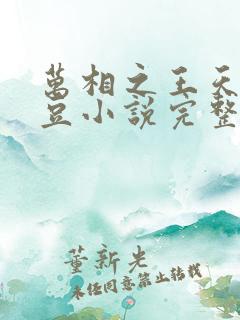 萬相之王天
豆小說完整
董新光
未经同意禁止转载